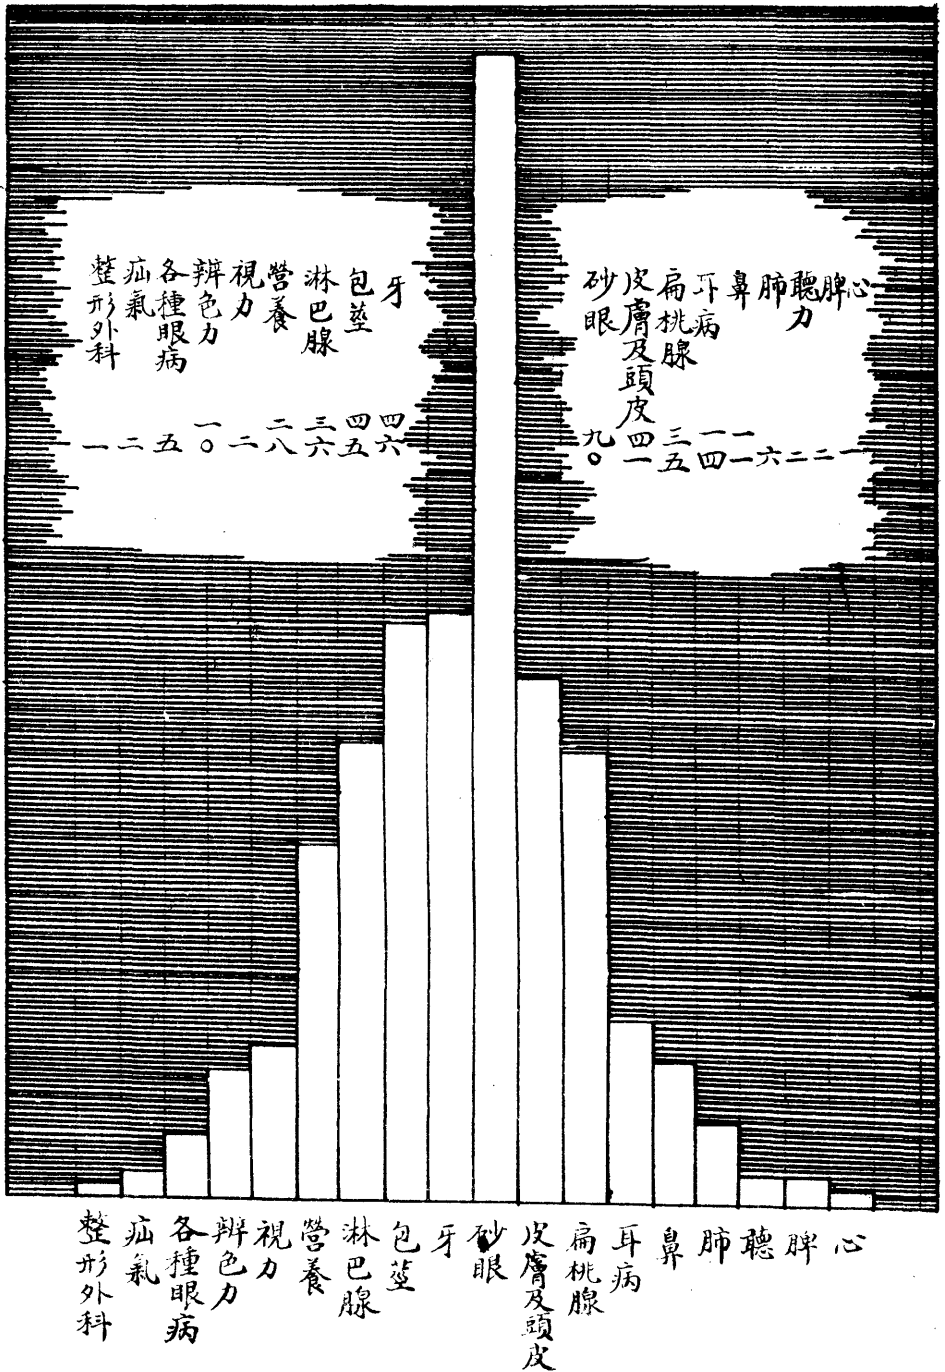 心 一
脾 二
聽力 二
肺 六
鼻 一一
耳病 一四
扁桃腺 三五
皮膚及頭皮 四一
砂眼 九〇
牙 四六
包莖 四五
淋巴腺 三六
營養 二八
視力 二
辨色力 一〇
各種眼病 五
疝氣 二
整形外科 一
心
脾
聽
肺
鼻
耳病
扁桃腺
皮膚及頭皮
砂眼
牙
包莖
淋巴腺
營養
視力
辨色力
各種眼病
疝氣
整形外科